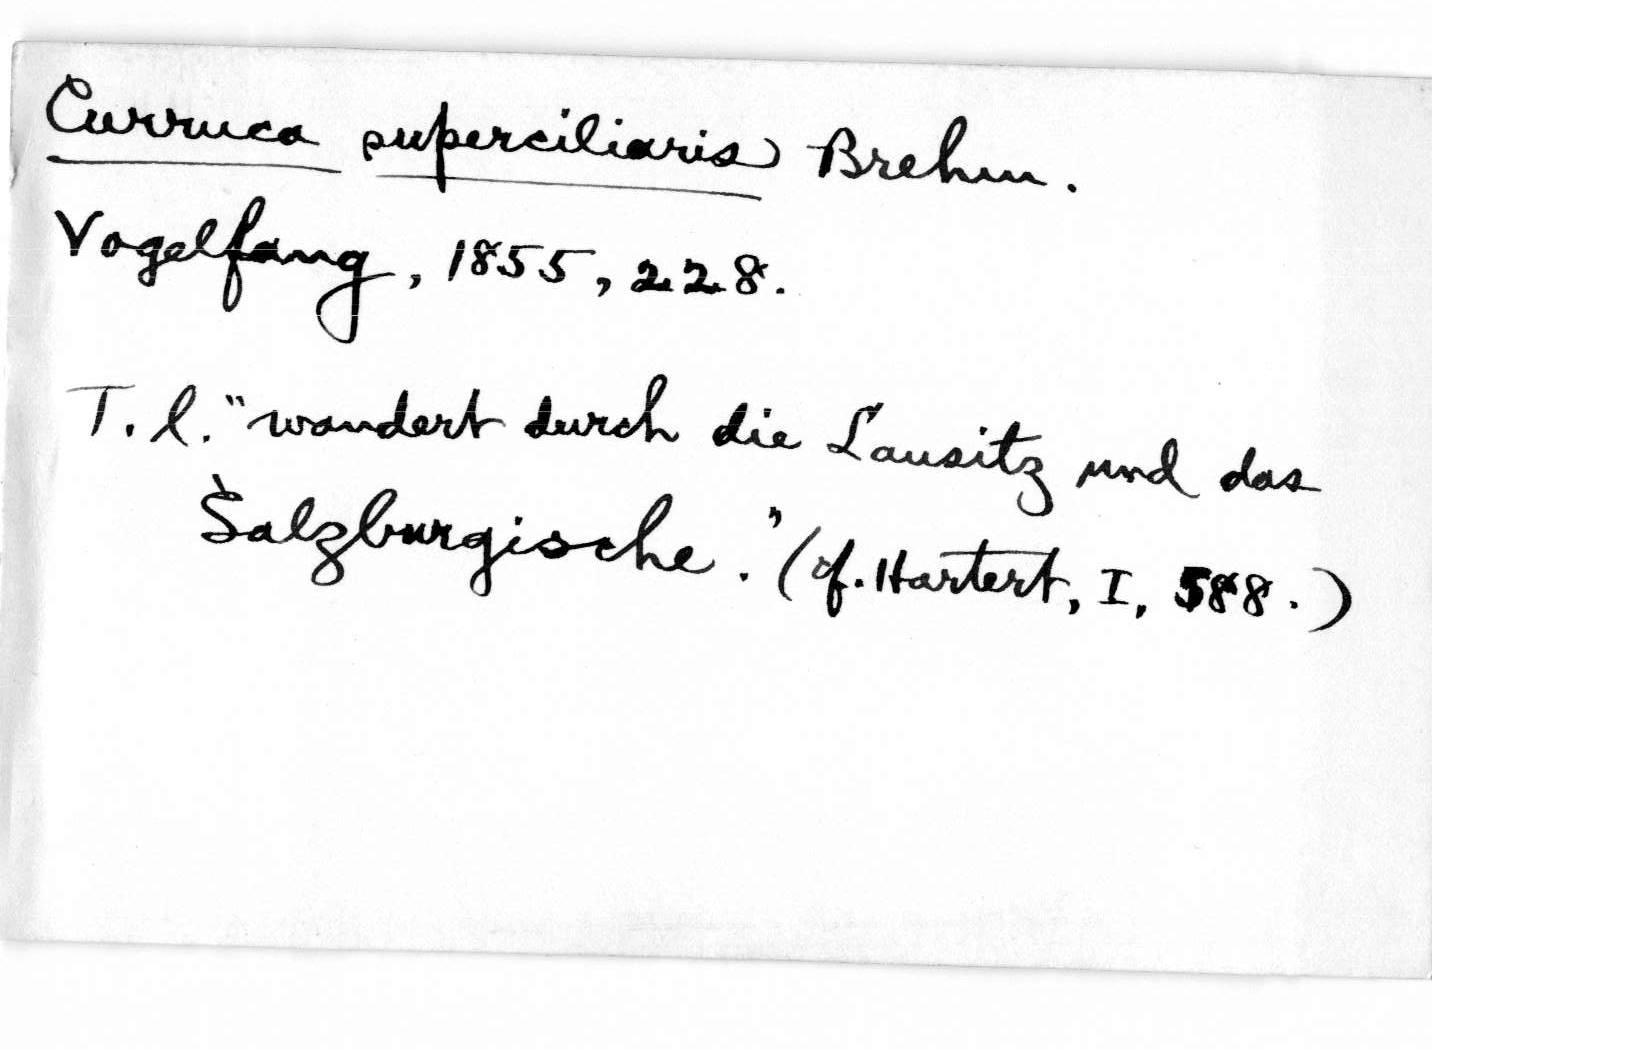 Curruca superciliaris Brehm.
Vogelfang, 1855, 228.
T. l. "wandert durch die Lausitz und das
Salzburgische." (cf. Hartert, I, 588.)